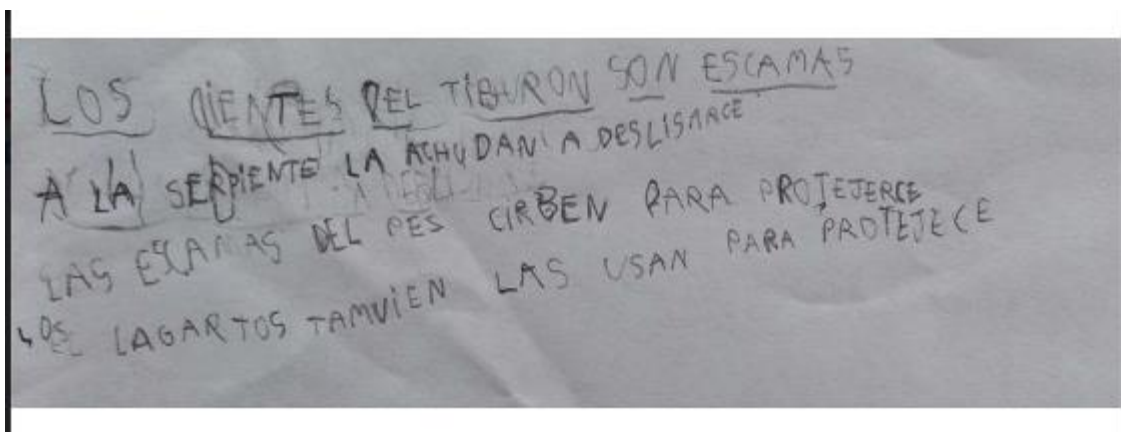 LOS DIENTES DEL TIBURON SON ESCAMAS
A LA SERPIENTE LA ACHUDAN A DESLISARCE
LAS ESCAMAS DEL PES CIRBEN PARA PROTEJERCE
LOS LAGARTOS TAMVIEN LAS USAN PARA PROTEJECE